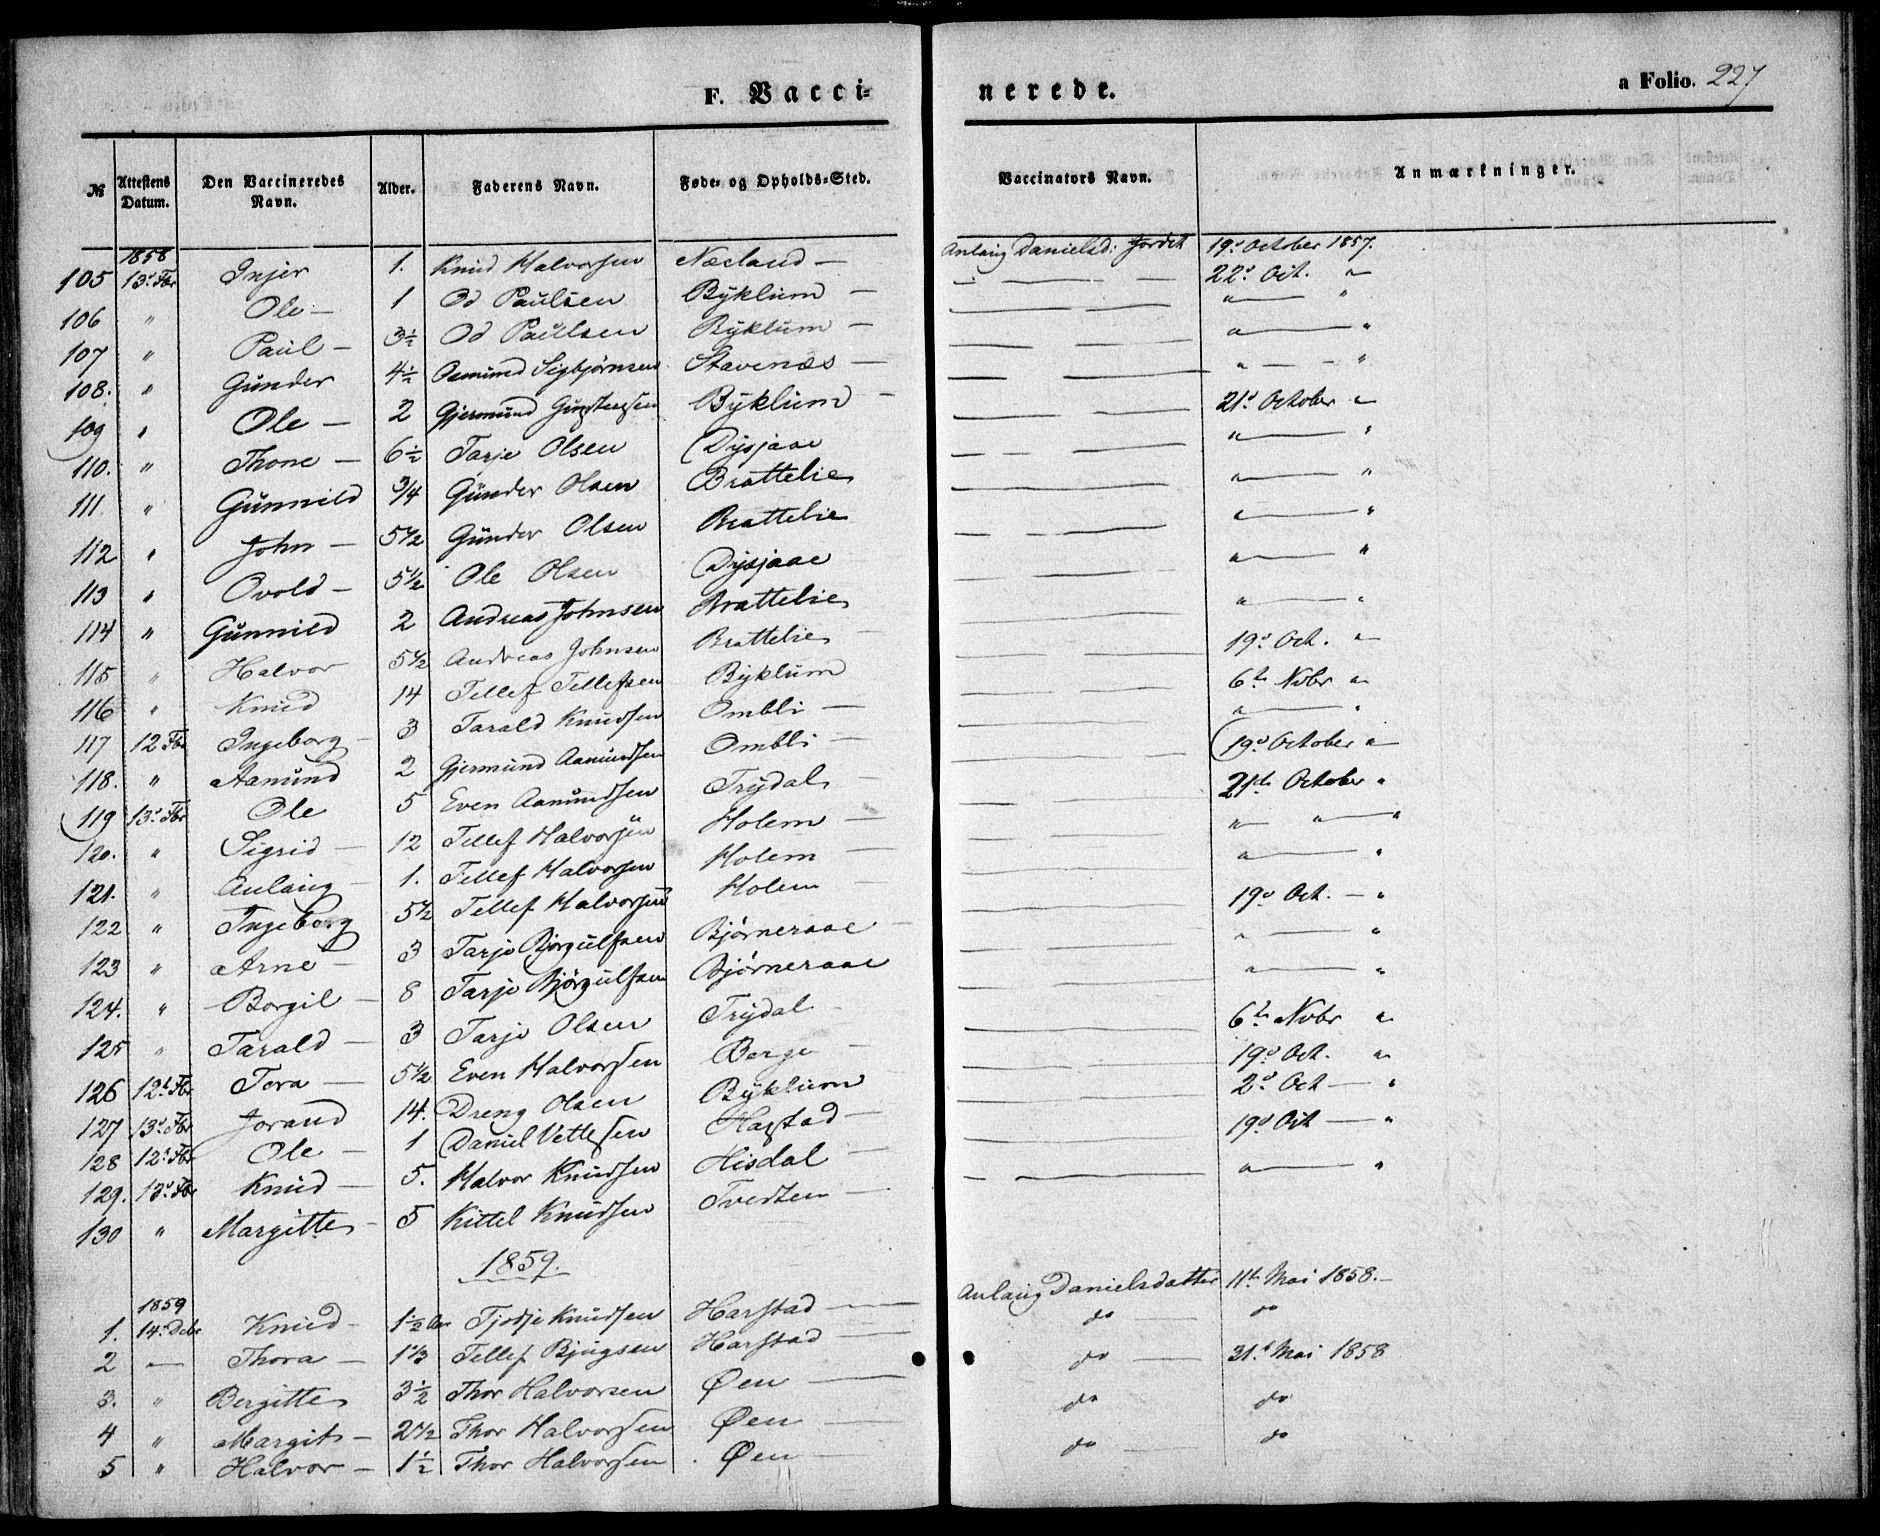 F. Vacci-
nerede.
a Folio. 227
№ Attestens Datum. Den Vaccineredes Navn. Alder. Faderens Navn. Føde- og Opholds-Sted. Vaccinators Navn. Anmærkninger.
1858
105 13d Fbr Injer 1. Knud Halvorsen Næeland — Anlaug Danielsd: Jordet 19d October 1857.
106 " Ole — 1 Od Paulsen Byklum — — — — 22d Oct. "
107 " Paul — 3½ Od Paulsen Byklum — — — " — "
108. " Gunder 4½ Osmund Sigbjørnsen Stavenæs — — — " — "
109 " Ole — 2 Gjermund Gundersen Byklum — — — " — "
110. " Thone — 6½ Tarje Olsen Dysjaae — — 21d October "
111 " Gunnild 3/4 Gunder Olsen Brattelie — — " — "
112 " John — 5½ Gunder Olsen Brattelie — — " — "
113 " Ovold — 5½ Ole Olsen Dysjaae — — " — "
114 " Gunnild 2 Andreas Johnsen Brattelie — — " — "
115 " Halvor 5½ Andreas Johnsen Brattelie — — " — "
116 " Knud 14 Tellef Tellefsen Byklum — — 19d Oct. "
117 12 Fbr Ingeborg — 3 Tarald Knudsen Ombli — — — 6te Nvbr "
118. " Aamund 2 Gjermund Aamundsen Ombli — — — " — "
119 13d Fbr Ole 5 Even Aanundsen Trydal — — 19d October "
120. " Sigrid — 12 Tellef Halvorsen Holem — — — 21de October "
121. " Anlaug — 1. Tellef Halvorsen Holem — — — " — "
122 " Ingeborg 5½ Tellef Halvorsen Holem — — — " — "
123 " Arne — 3 Tarje Bjørgulfsen Bjørneraae — — 19d Oct. — "
124. " Borgil — 8 Tarje Bjørgulfsen Bjørneraae — — " — "
125 " Tarald — 3 Tarje Olsen Trydal — — — " — "
126 12te Fbr Tora — 5½ Even Halvorsen Berge — — — 6te Nvbr "
127 13d Fbr Jorand 14. Dreng Olsen Byklum — — 19d Oct. "
128 12te Fbr Ole — 1 Daniel Vettesen Hagstad — — — 2d Oct — "
129. 13d Fbr Knud — 5. Halvor Knudsen Hisdal — — — 19d Oct — "
130 " Margitte — 5 Kittel Knudsen Tvedten — — — " — "
1859.
1859
1. 14de Debr Knud — 1½ Aar Tjotje Knudsen Harstad — Anlaug Danielsdatter 11te Mai 1858. —
2 — Thora — 1⅓ Tellef Bjugsen Harstad — do — do
3. " Bergitte 3½ Thor Halvorsen Øen — do — 31te Mai 1858
4 " Margit — 2½ Thor Halvorsen Øen — do do
5 " Halvor — 1½ Thor Halvorsen Øen — do — do